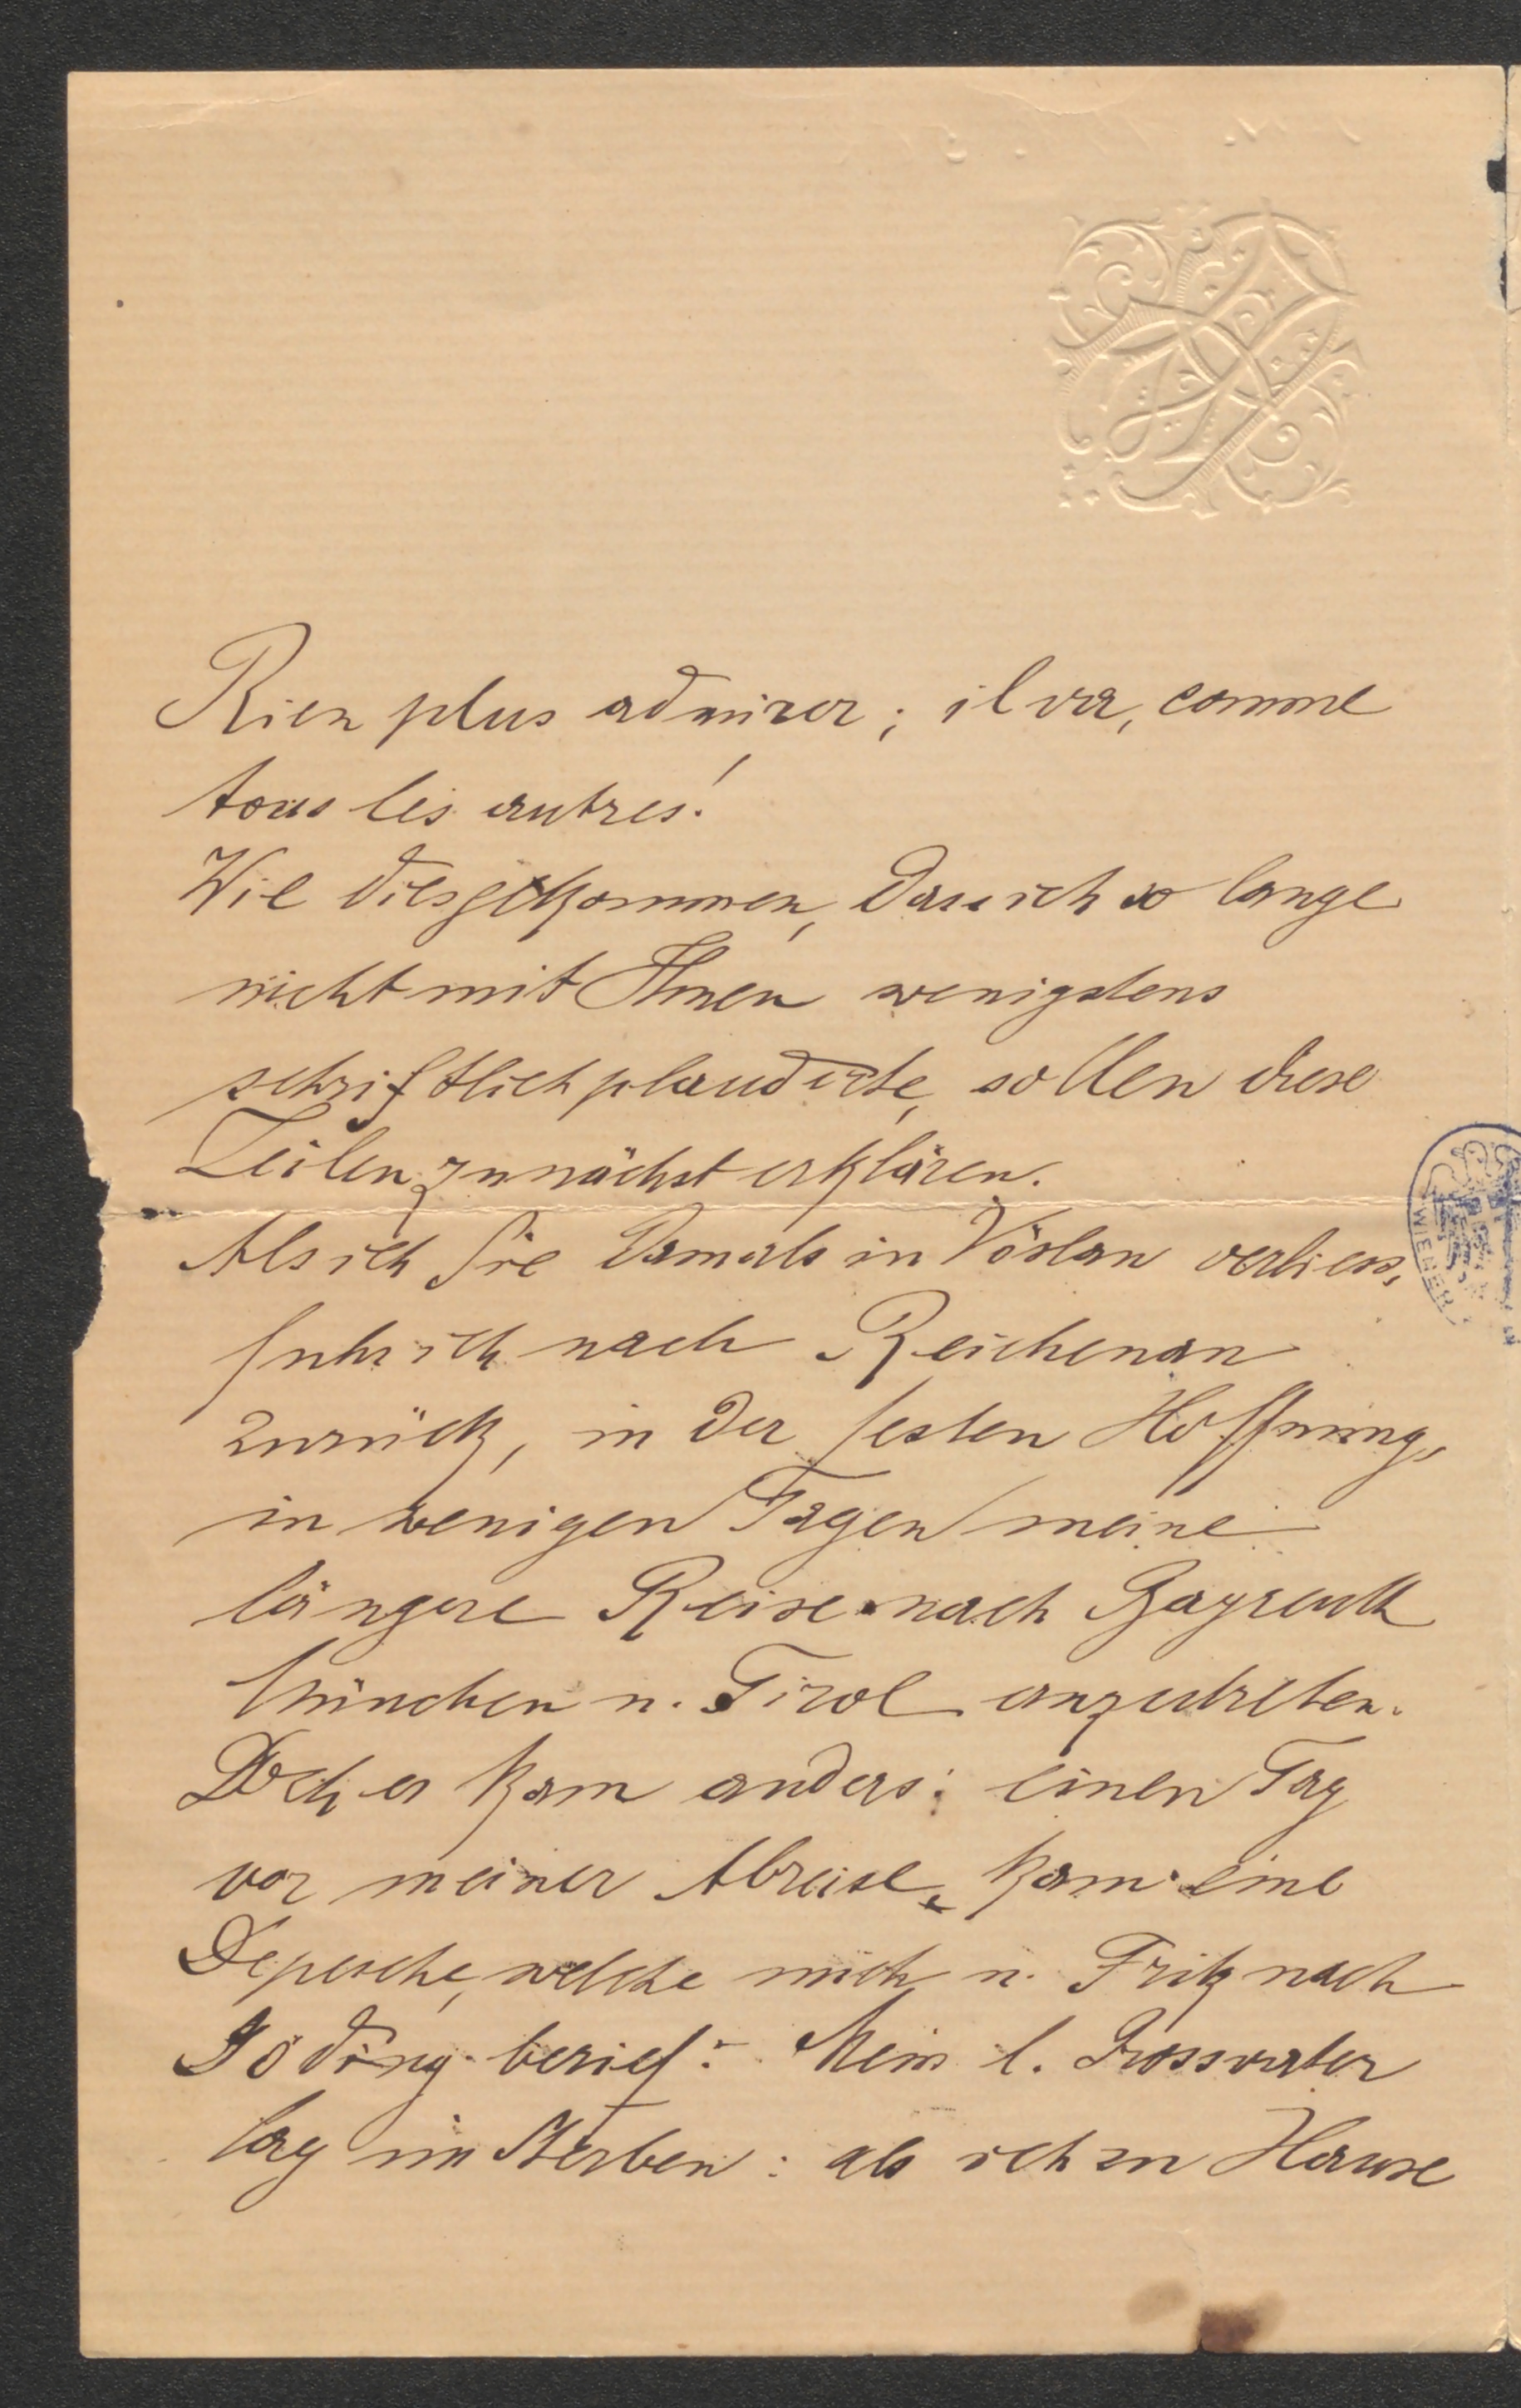 Rien plus admirer; il va, comme
tous les autres!
Wie dies gekommen, dass ich so lange
nicht mit Ihnen wenigstens
schriftlich plauderte, sollen diese
Zeilen zunächst erklären.
Als ich Sie damals in Vöslau verliess,
fuhr ich nach Reichenau
zurück, in der festen Hoffnung,
in wenigen Tagen meine
längere Reise nach Bayreuth
München u. Tirol anzutreten.
Doch es kam anders: einen Tag
vor meiner Abreise, kam eine
Depesche, welche mich u. Fritz nach
Göding berief: Mein l. Grossvater
lag im Sterben: als ich zu Hause
WIENER